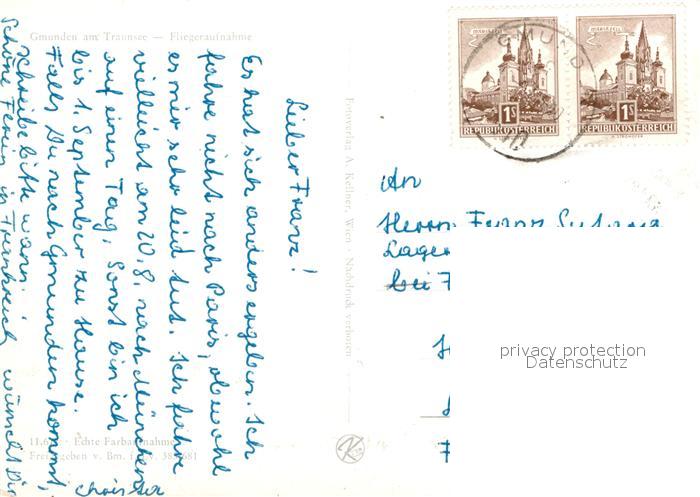 Gmunden am Traunsee — Fliegeraufnahme
Lieber Franz!
Es hat sich anders ergeben. Ich
fahre nicht nach Paris, obwohl
es mir sehr leid tut. Ich fahre
vielleicht am 20.8. nach München
auf einen Tag. Sonst bin ich
bis 1. September zu Hause.
Falls Du nach Gmunden kommst,
schreibe bitte wann.
Schöne Ferien in Frankreich wünscht Dir
Fotoverlag A. Kellner, Wien · Nachdruck verboten
Echte Farbaufnahme
MARIAZELL
1S
REPUBLIK ÖSTERREICH
MARIAZELL
1S
REPUBLIK ÖSTERREICH
GMUND
An
Herrn Franz
Lage
bei
privacy protection
Datenschutz